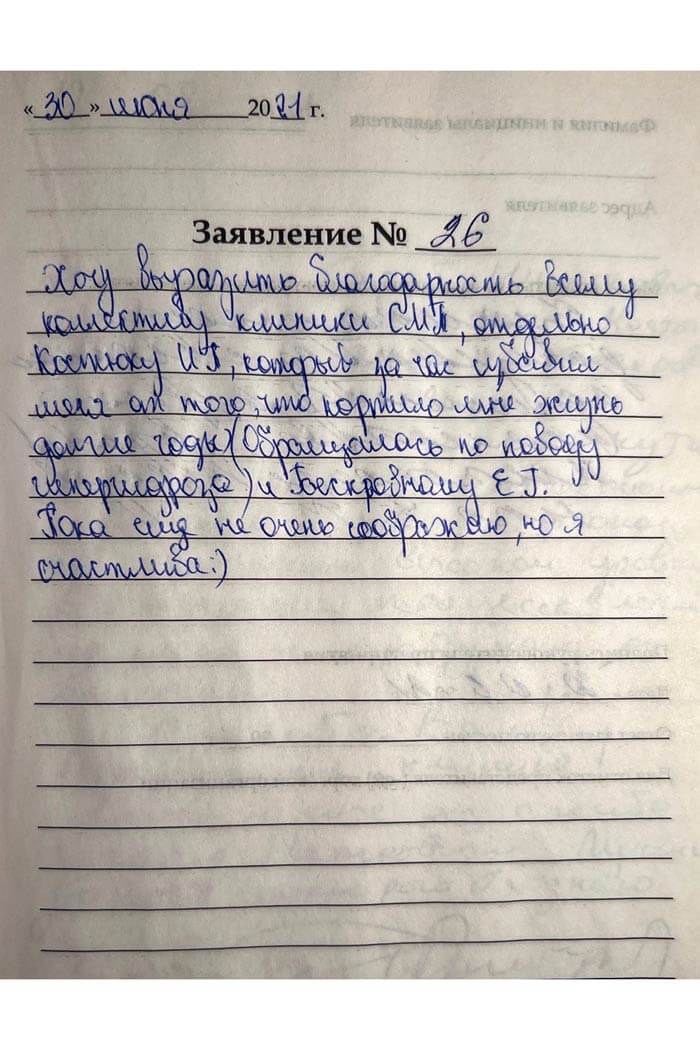 «30» июня 2021 г.
Заявление № 26
Хочу выразить благодарность всему
коллективу клиники СМТ, отдельно
Костюку И Г, который за час избавил
меня от того, что портило мне жизнь
долгие годы (обращалась по поводу
гипергидроза) и Бескровному Е Г.
Пока ещё не очень соображаю, но я
счастлива :)
Фамилия и инициалы заявителя
Адрес заявителя